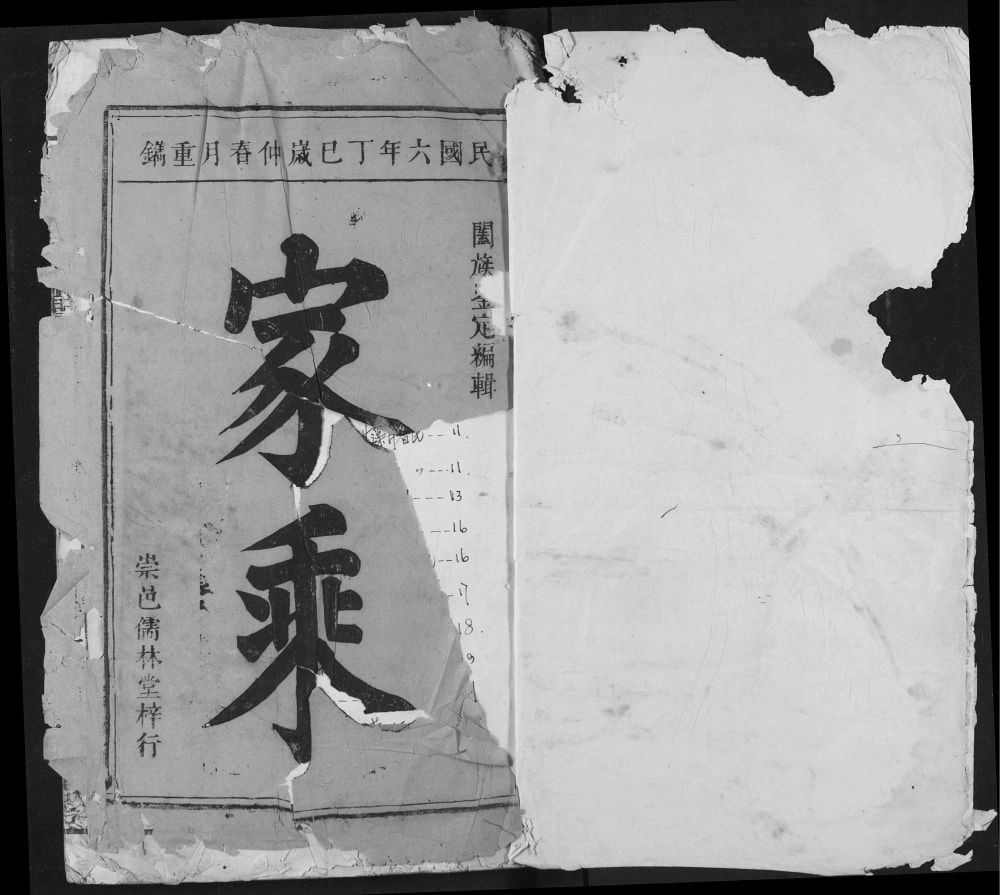 民國六年丁巳歲仲春月重鐫
闔族鉴定編輯
家乘
崇邑儒林堂梓行
11.
〃---11.
---13
--16
--16
17
18.
9
1